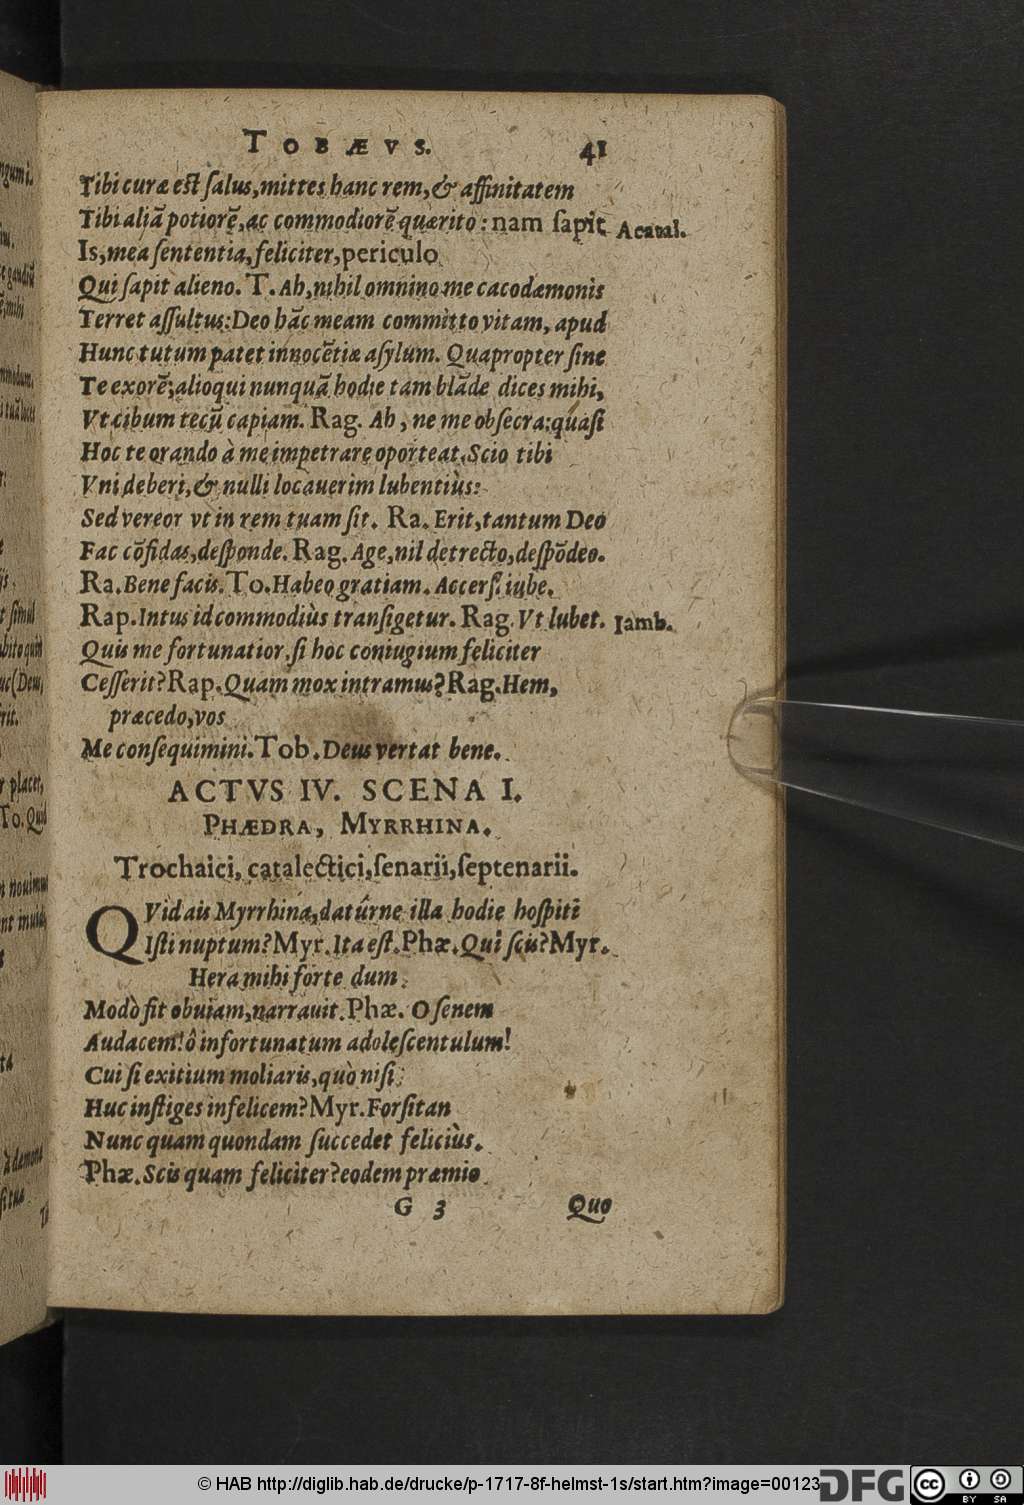 TOBÆVS. 41
Tibi curæ est salus, mittes hanc rem, & affinitatem
Tibi aliā potiorē, ac commodiorē quærito: nam sapit Acatal.
Is, mea sententia, feliciter, periculo
Qui sapit alieno. T. Ah, nihil omnino me cacodæmonis
Terret assultus: Deo hāc meam committo vitam, apud
Hunc tutum patet innocētiæ asylum. Quapropter sine
Te exorē; alioqui nunquā hodie tam blāde dices mihi,
Vt cibum tecū capiam. Rag. Ah, ne me obsecra: quasi
Hoc te orando à me impetrare oporteat. Scio tibi
Vni deberi, & nulli locauerim lubentiùs:
Sed vereor vt in rem tuam sit. Ra. Erit, tantum Deo
Fac cōfidas, desponde. Rag. Age, nil detrecto, despōdeo.
Ra. Bene facis. To. Habeo gratiam. Accersi iube.
Rap. Intus id commodiùs transigetur. Rag. Vt lubet. Iamb.
Quis me fortunatior, si hoc coniugium feliciter
Cesserit? Rap. Quam mox intramus? Rag. Hem,
præcedo, vos
Me consequimini. Tob. Deus vertat bene.
ACTVS IV. SCENA I.
PHÆDRA, MYRRHINA.
Trochaici, catalectici, senarii, septenarii.
QVid ais Myrrhina, datûrne illa hodie hospiti
Isti nuptum? Myr. Ita est. Phæ. Quî scis? Myr.
Hera mihi forte dum
Modò fit obuiam, narrauit. Phæ. O senem
Audacem! ô infortunatum adolescentulum!
Cui si exitium moliaris, quò nisi
Huc instiges infelicem? Myr. Forsitan
Nunc quam quondam succedet feliciùs.
Phæ. Scis quam feliciter? eodem præmio
G 3 Quo
© HAB http://diglib.hab.de/drucke/p-1717-8f-helmst-1s/start.htm?image=00123
DFG
cc BY SA